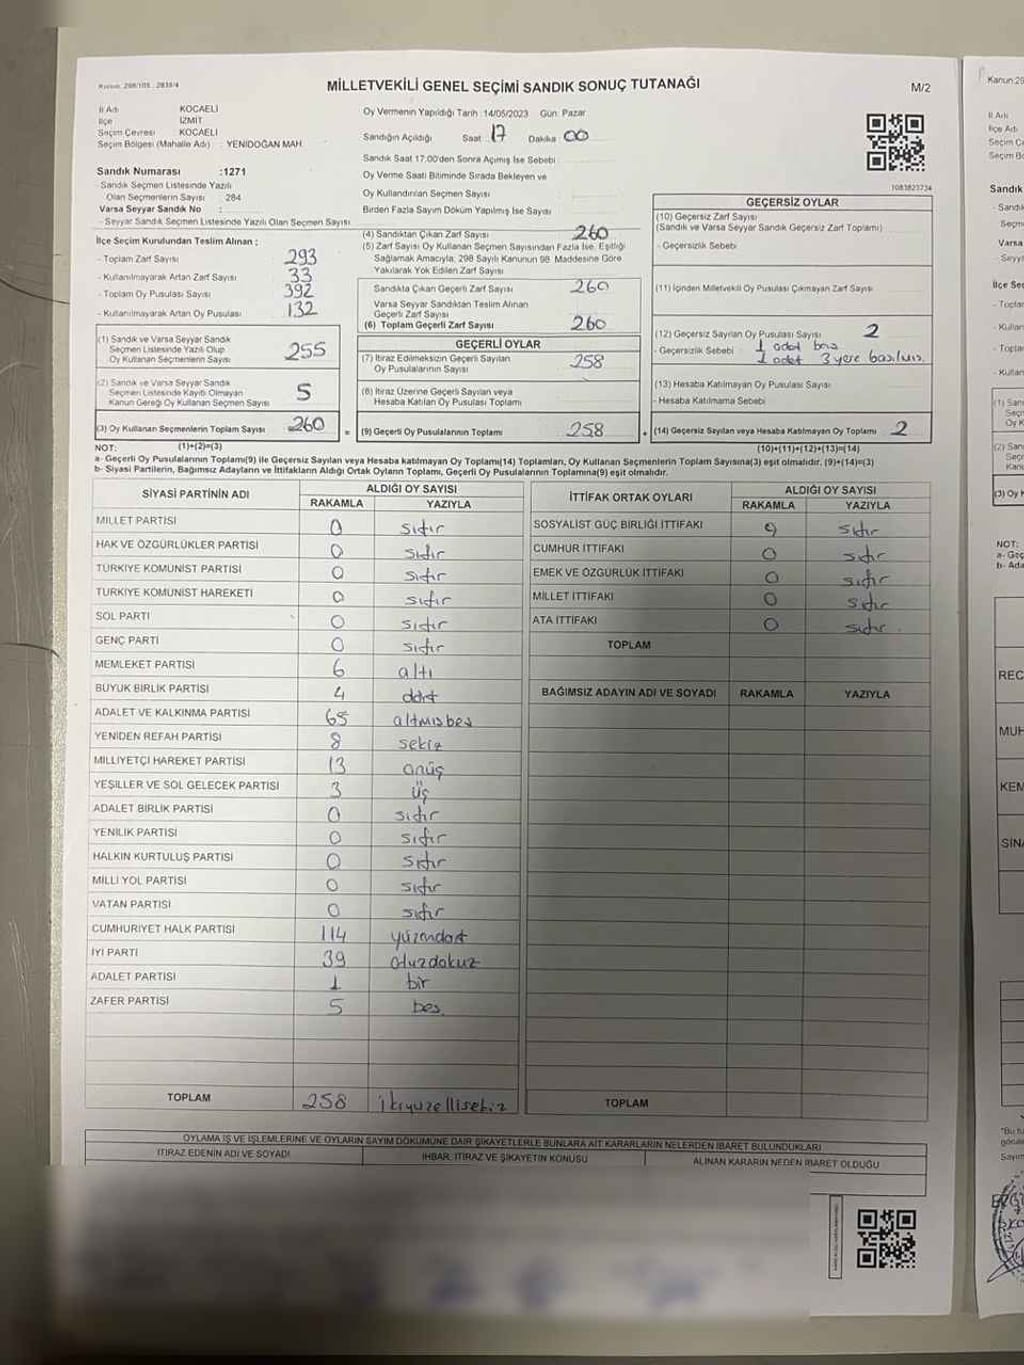 MİLLETVEKİLİ GENEL SEÇİMİ SANDIK SONUÇ TUTANAĞI
M/2
İl Adı KOCAELİ
İlçe İZMİT
Seçim Çevresi KOCAELİ
Seçim Bölgesi (Mahalle Adı) : YENİDOĞAN MAH.
Oy Vermenin Yapıldığı Tarih :14/05/2023 Gün: Pazar
Sandığın Açıldığı Saat 17 Dakika 00
Sandık Saat 17.00'den Sonra Açımış İse Sebebi
Oy Verme Saati Bitiminde Sırada Bekleyen ve
Oy Kullandırılan Seçmen Sayısı
Birden Fazla Sayım Döküm Yapılmış İse Sayısı
1083823734
Sandık Numarası :1271
- Sandık Seçmen Listesinde Yazılı
Olan Seçmenlerin Sayısı : 284
Varsa Seyyar Sandık No :
- Seyyar Sandık Seçmen Listesinde Yazılı Olan Seçmen Sayısı
İlçe Seçim Kurulundan Teslim Alınan ;
- Toplam Zarf Sayısı 293
- Kullanılmayarak Artan Zarf Sayısı 33
- Toplam Oy Pusulası Sayısı 392
- Kullanılmayarak Artan Oy Pusulası 132
(1) Sandık ve Varsa Seyyar Sandık
Seçmen Listesinde Yazılı Olup
Oy Kullanan Seçmen Sayısı 255
(2) Sandık ve Varsa Seyyar Sandık
Seçmen Listesinde Kayıtlı Olmayan
Kanun Gereği Oy Kullanan Seçmen Sayısı 5
(3) Oy Kullanan Seçmenlerin Toplam Sayısı 260
(1)+(2)=(3)
(4) Sandıktan Çıkan Zarf Sayısı 260
(5) Zarf Sayısı Oy Kullanan Seçmen Sayısından Fazla İse, Eşitliği
Sağlamak Amacıyla, 298 Sayılı Kanunun 98. Maddesine Göre
Yakılarak Yok Edilen Zarf Sayısı
Sandıkta Çıkan Geçerli Zarf Sayısı 260
Varsa Seyyar Sandıktan Teslim Alınan
Geçerli Zarf Sayısı
(6) Toplam Geçerli Zarf Sayısı 260
GEÇERLİ OYLAR
(7) İtiraz Edilmeksizin Geçerli Sayılan
Oy Pusulalarının Sayısı 258
(8) İtiraz Üzerine Geçerli Sayılan veya
Hesaba Katılan Oy Pusulası Toplamı
= (9) Geçerli Oy Pusulalarının Toplamı 258
GEÇERSİZ OYLAR
(10) Geçersiz Zarf Sayısı
(Sandık ve Varsa Seyyar Sandık Geçersiz Zarf Toplamı)
- Geçersizlik Sebebi
(11) İçinden Milletvekili Oy Pusulası Çıkmayan Zarf Sayısı
(12) Geçersiz Sayılan Oy Pusulası Sayısı 2
- Geçersizlik Sebebi 1 adet boş
1 adet 3 yere basılmış.
(13) Hesaba Katılmayan Oy Pusulası Sayısı
- Hesaba Katılmama Sebebi
+ (14) Geçersiz Sayılan veya Hesaba Katılmayan Oy Toplamı 2
(10)+(11)+(12)+(13)=(14)
NOT:
a- Geçerli Oy Pusulalarının Toplamı(9) ile Geçersiz Sayılan veya Hesaba katılmayan Oy Toplamı(14) Toplamları, Oy Kullanan Seçmenlerin Toplam Sayısına(3) eşit olmalıdır. (9)+(14)=(3)
b- Siyasi Partilerin, Bağımsız Adayların ve İttifakların Aldığı Ortak Oyların Toplamı, Geçerli Oy Pusulalarının Toplamına(9) eşit olmalıdır.
SİYASİ PARTİNİN ADI ALDIĞI OY SAYISI
RAKAMLA YAZIYLA
MİLLET PARTİSİ 0 sıfır
HAK VE ÖZGÜRLÜKLER PARTİSİ 0 sıfır
TÜRKİYE KOMÜNİST PARTİSİ 0 sıfır
TÜRKİYE KOMÜNİST HAREKETİ 0 sıfır
SOL PARTİ 0 sıfır
GENÇ PARTİ 0 sıfır
MEMLEKET PARTİSİ 6 altı
BÜYÜK BİRLİK PARTİSİ 4 dört
ADALET VE KALKINMA PARTİSİ 65 altmışbeş
YENİDEN REFAH PARTİSİ 8 sekiz
MİLLİYETÇİ HAREKET PARTİSİ 13 onüç
YEŞİLLER VE SOL GELECEK PARTİSİ 3 üç
ADALET BİRLİK PARTİSİ 0 sıfır
YENİLİK PARTİSİ 0 sıfır
HALKIN KURTULUŞ PARTİSİ 0 sıfır
MİLLİ YOL PARTİSİ 0 sıfır
VATAN PARTİSİ 0 sıfır
CUMHURİYET HALK PARTİSİ 114 yüzondört
İYİ PARTİ 39 otuzdokuz
ADALET PARTİSİ 1 bir
ZAFER PARTİSİ 5 beş
TOPLAM 258 ikiyüzellisekiz
İTTİFAK ORTAK OYLARI ALDIĞI OY SAYISI
RAKAMLA YAZIYLA
SOSYALİST GÜÇ BİRLİĞİ İTTİFAKI sıfır
CUMHUR İTTİFAKI 0 sıfır
EMEK VE ÖZGÜRLÜK İTTİFAKI 0 sıfır
MİLLET İTTİFAKI 0 sıfır
ATA İTTİFAKI 0 sıfır.
TOPLAM
BAĞIMSIZ ADAYIN ADI VE SOYADI RAKAMLA YAZIYLA
TOPLAM
OYLAMA İŞ VE İŞLEMLERİNE VE OYLARIN SAYIM DÖKÜMÜNE DAİR ŞİKAYETLERLE BUNLARA AİT KARARLARIN NELERDEN İBARET BULUNDUKLARI
İTİRAZ EDENİN ADI VE SOYADI İHBAR, İTİRAZ VE ŞİKAYETİN KONUSU ALINAN KARARIN NEDEN İBARET OLDUĞU
Kanun
İl Adı
İlçe Adı
Sandık
NOT:
REC
MUH
KEM
SİN